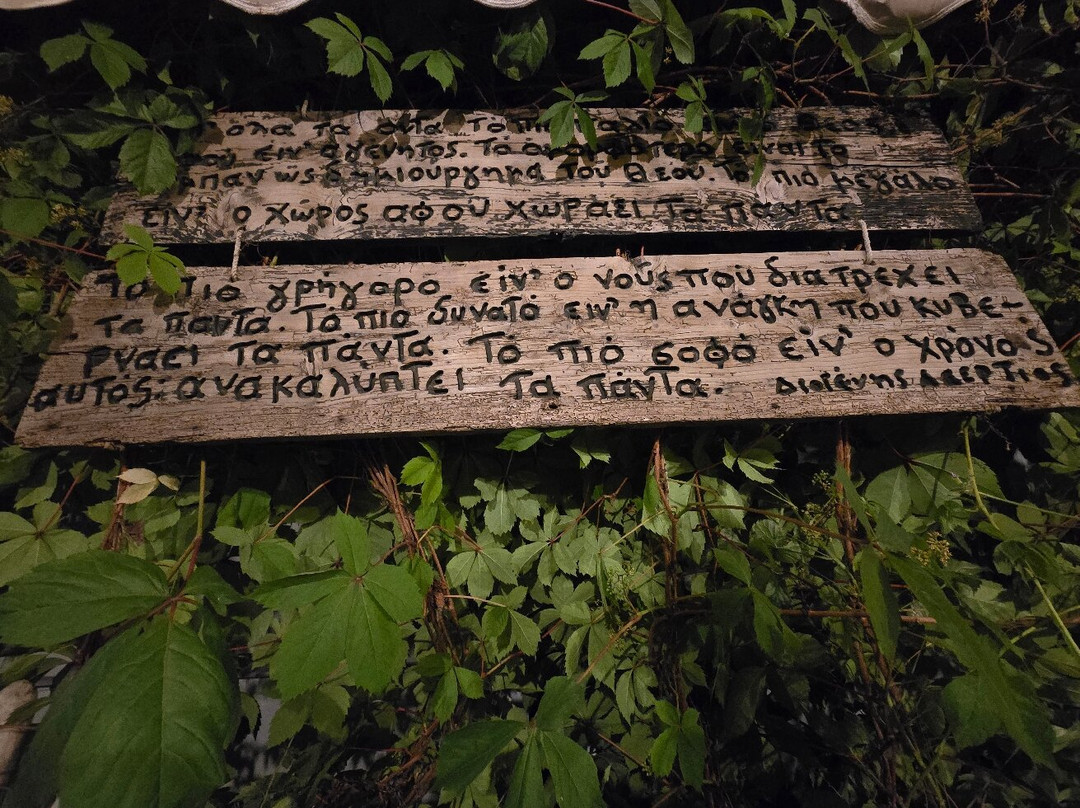 όλα τα όντα. Το πιο
που είν' αγέννητος. Το είναι το
σύμπαν ως δημιούργημα του Θεού. Το πιό μεγάλο
είν' ο χώρος αφού χωράει τα πάντα
Το πιό γρήγορο είν' ο νούς που διατρέχει
τα πάντα. Το πιο δυνατό ειν' η ανάγκη που κυβε-
ρνάει τα πάντα. Τό πιό σοφό είν' ο χρόνος
αυτός: ανακαλύπτει τα πάντα. Διογένης Λαέρτιος